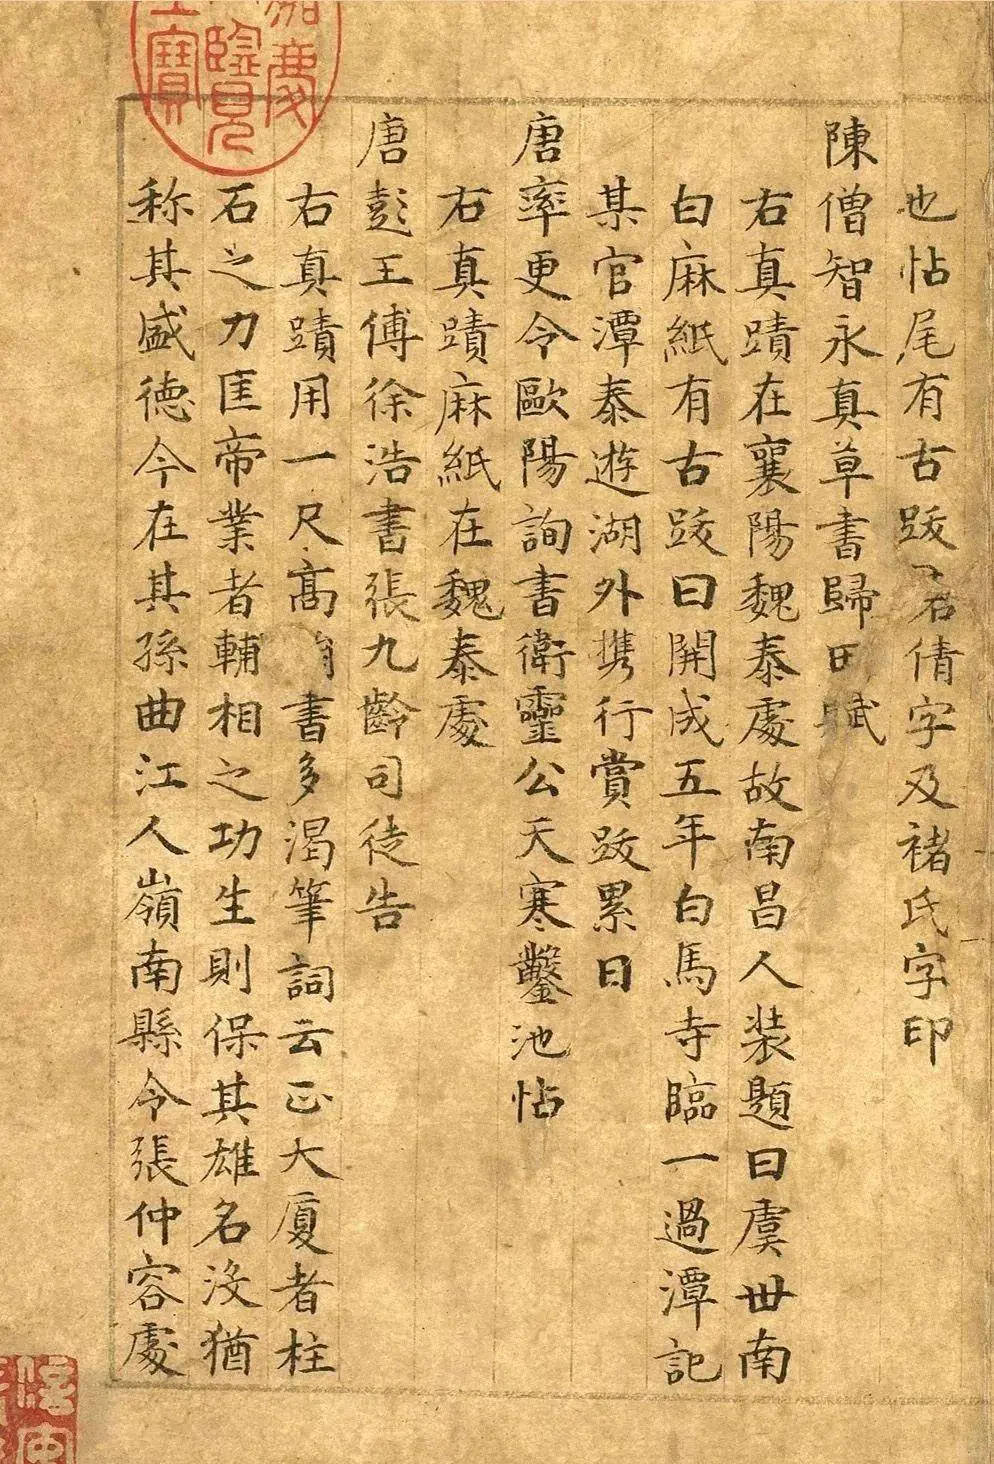 也帖尾有古跋君倩字及褚氏字印
陳僧智永真草書歸田賦
右真蹟在襄陽魏泰處故南昌人装題曰虞世南
白麻紙有古跋曰開成五年白馬寺臨一過潭記
某官潭泰遊湖外携行賞跋累日
唐率更令歐陽詢書衛靈公天寒鑿池帖
右真蹟麻紙在魏泰處
唐彭王傅徐浩書張九齡司徒告
右真蹟用一尺高絹書多渴筆詞云正大厦者柱
石之力匡帝業者輔相之功生則保其雄名沒猶
称其盛德今在其孫曲江人嶺南縣令張仲容處
嘉慶
御覽
之寶